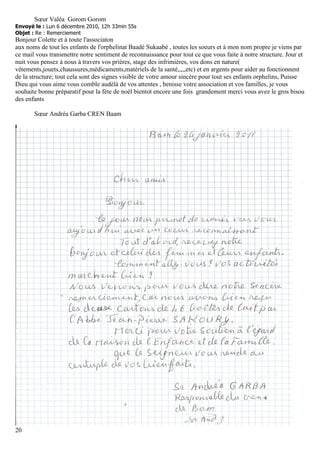 Sœur Valéa Gorom Gorom
Envoyé le : Lun 6 décembre 2010, 12h 33min 55s
Objet : Re : Remerciement
Bonjour Colette et à toute l'associaton
aux noms de tout les enfants de l'orphelinat Baadé Sukaabé , toutes les soeurs et à mon nom propre je viens par
ce mail vous transmettre notre sentiment de reconnaissance pour tout ce que vous faite à notre structure. Jour et
nuit vous pensez à nous à travers vos prières, stage des infrimières, vos dons en nature(
vêtements,jouets,chaussures,médicaments,matériels de la santé,,,,etc) et en argents pour aider au fonctionnent
de la structure; tout cela sont des signes visible de votre amour sincère pour tout ses enfants orphelins, Puisse
Dieu qui vous aime vous comble audélà de vos attentes , benisse votre association et vos familles, je vous
souhaite bonne préparatif pour la fête de noël bientot encore une fois grandement merci vous avez le gros bisou
des enfants
Sœur Andréa Garba CREN Baam
Bam le 26 janvier 2011
Chers amis
Bonjour
le jour nous permet de venir vers vous
aujourd'hui avec un cœur reconnaissant
Tout d'abord, recevez notre
bonjour et celui des femmes et leurs enfants.
Comment allez vous? vos activités
marchent bien?
Nous venons pour vous dire notre sincère
remerciement, car nous avons bien reçu
les deux cartons de 48 boîtes de lait par
l'Abbé Jean-Pierre SAKOURY.
Merci pour votre soutien à l'égard
de la Maison de l'Enfance et de la Famille.
Que le Seigneur vous rende au
centuple de vos bienfaits.
Sr Andréa GARBA
Responsable du
de Bam
20